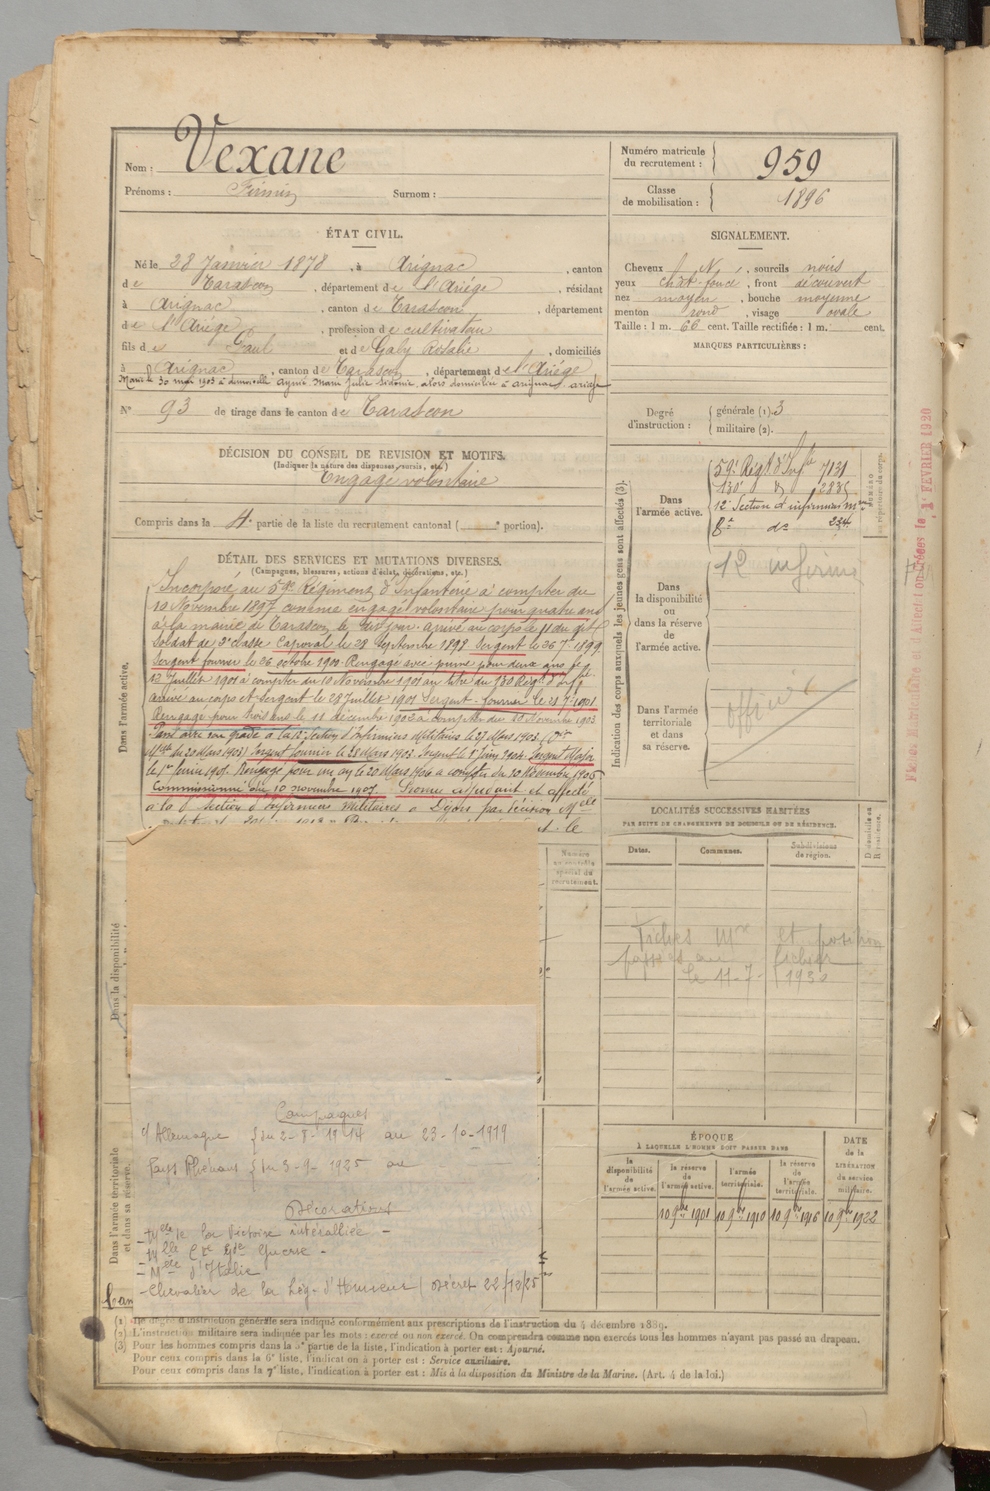 Nom : Vexane
Prénoms : Firmin Surnom :
Numéro matricule
du recrutement : 959
Classe
de mobilisation : 1896
ÉTAT CIVIL.
Né le 28 Janvier 1878, à Arignac, canton
de Tarascon, département de l'Ariège, résidant
à Arignac, canton de Tarascon, département
de l'Ariège, profession de cultivateur
fils de Paul et de Gaby Rosalie, domiciliés
à Arignac, canton de Tarascon, département de l'Ariège
Marié le 30 mai 1903 à demoiselle Aynié Marie Julie Sidonie, alors domiciliée à Arignac ariège
N° 93 de tirage dans le canton de Tarascon
SIGNALEMENT.
Cheveux N, sourcils noirs
yeux chât. foncé, front découvert
nez moyen, bouche moyenne
menton rond, visage ovale
Taille : 1 m. 66 cent. Taille rectifiée : 1 m. cent.
MARQUES PARTICULIÈRES :
Degré
d'instruction :
générale (1). 3
militaire (2).
DÉCISION DU CONSEIL DE REVISION ET MOTIFS.
(Indiquer la nature des dispenses, sursis, etc.)
Engagé volontaire
Compris dans la 4e partie de la liste du recrutement cantonal ( portion).
DÉTAIL DES SERVICES ET MUTATIONS DIVERSES.
(Campagnes, blessures, actions d'éclat, décorations, etc.)
Dans l'armée active.
Incorporé au 59e Régiment d'Infanterie à compter du
10 Novembre 1897 comme engagé volontaire pour quatre ans
à la mairie de Tarascon le dit jour. arrivé au corps le 11 du dit
Soldat de 2e classe Caporal le 28 Septembre 1898 Sergent le 26 7bre 1899
Sergent fourrier le 26 octobre 1900 Rengagé avec prime pour deux ans le
12 Juillet 1901 à compter du 10 Novembre 1901 au titre du 130 Régt d'Inf.
arrivé au corps et Sergent le 28 Juillet 1901 Sergent-fourrier le 21 7bre 1901
Rengagé pour trois ans le 11 décembre 1902 à compter du 10 Novembre 1903
Passé avec son grade à la 12e Section d'Infirmiers Militaires le 27 Mars 1903. (Don
Melle du 20 Mars 1903) Sergent fourrier le 28 Mars 1903. Sergent le 1er Juin 1904. Sergent Major
le 1er Février 1905. Rengagé pour un an le 20 Mars 1906 à compter du 10 Novembre 1906
Commissionné du 10 novembre 1907. Promu adjudant et affecté
à la 8e Section d'Infirmiers Militaires à Dijon par décision Melle
Indication des corps auxquels les jeunes gens sont affectés (3).
Dans
l'armée active.
59e Régt d'Infie 7131
130e d° 2835
12e Section d'infirmiers mres
8e do 234
NUMÉRO
au répertoire du corps.
Dans
la disponibilité
ou
dans la réserve
de
l'armée active.
12 infirmi
Dans l'armée
territoriale
et dans
sa réserve.
officier
Fiches Matriculaire et d'Affectation créées le 1er FEVRIER 1920
LOCALITÉS SUCCESSIVES HABITÉES
PAR SUITE DE CHANGEMENTS DE DOMICILE OU DE RÉSIDENCE.
Dates.
Communes.
Subdivisions
de région.
D. domicile ou
R. résidence.
Fiches Mle et position
passées au fichier
le 11-7-1930
Numéro
au contrôle
spécial du
recrutement.
Dans la disponibilité
Dans l'armée territoriale
et dans sa réserve.
Campagnes
c/ Allemagne du 2-8-1914 au 23-10-1919
Pays Rhénans du 3-9-1925 au
Décorations
- Mlle de la Victoire interalliée -
- Mlle Cre Gde Guerre -
- Mlle d'Italie
- Chevalier de la Lég. d'Honneur (décret 22/12/25
Cam
ÉPOQUE
À LAQUELLE L'HOMME DOIT PASSER DANS
la
disponibilité
de
l'armée active.
la réserve
de
l'armée active.
l'armée
territoriale.
la réserve
de
l'armée
territoriale.
DATE
de la
LIBÉRATION
du service
militaire.
10 9bre 1901
10 9bre 1910
10 9bre 1916
10 9bre 1922
(1) Le degré d'instruction générale sera indiqué conformément aux prescriptions de l'instruction du 4 décembre 1889.
(2) L'instruction militaire sera indiquée par les mots : exercé ou non exercé. On comprendra comme non exercés tous les hommes n'ayant pas passé au drapeau.
(3) Pour les hommes compris dans la 5e partie de la liste, l'indication à porter est : Ajourné.
Pour ceux compris dans la 6e liste, l'indication à porter est : Service auxiliaire.
Pour ceux compris dans la 7e liste, l'indication à porter est : Mis à la disposition du Ministre de la Marine. (Art. 4 de la loi.)